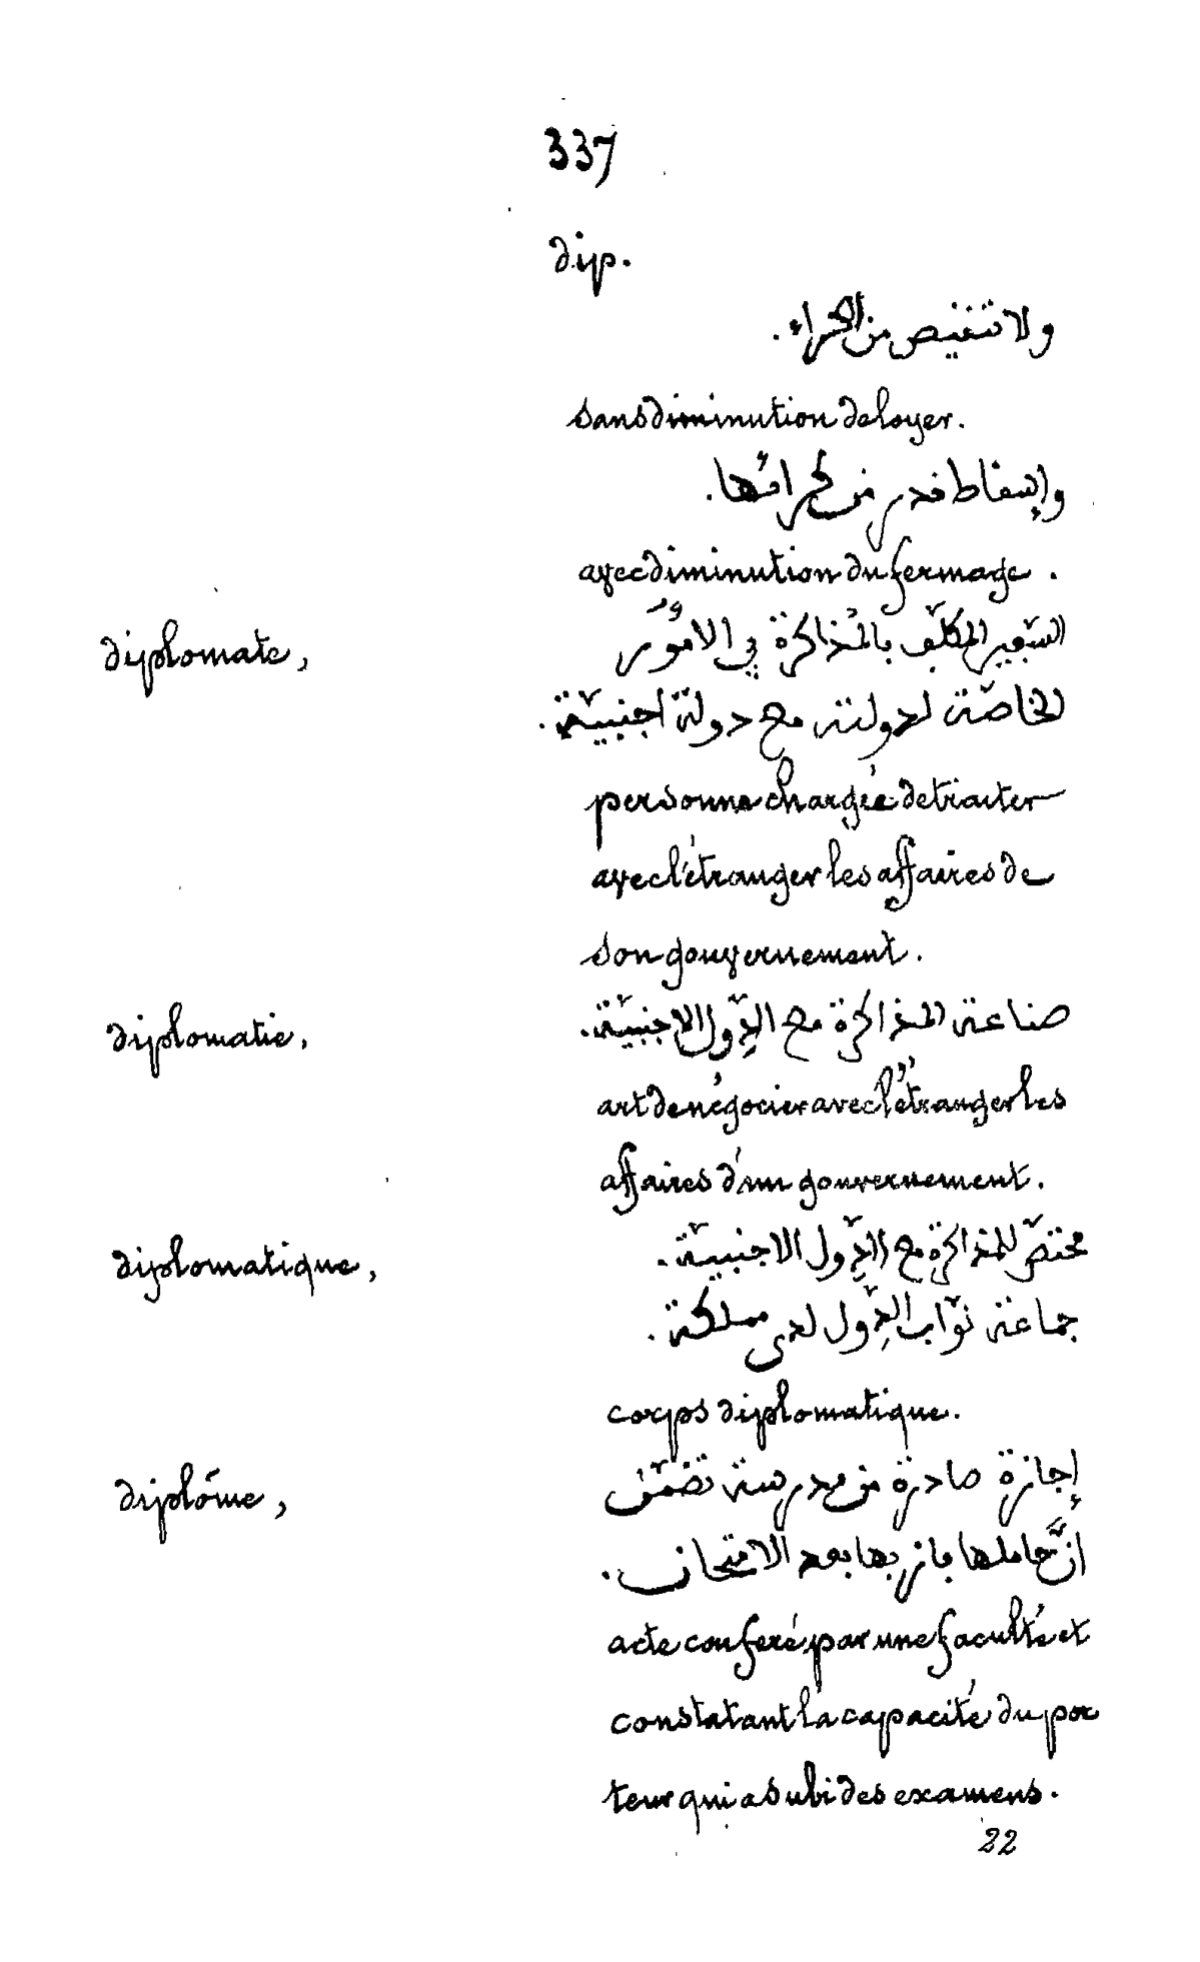 337
dip.
ولا تنقيص من الكراء.
sans diminution de loyer.
وإسقاط قدر من كرائها.
avec diminution du fermage.
diplomate,
السّفير المكلّف بالمُذاكرة في الامُور
الخاصّة لدولته مع دولة اجنبيّة.
personne chargée de traiter
avec l'étranger les affaires de
son gouvernement.
diplomatie,
صناعة المذاكرة مع الدِّول الاجنبيّة.
art de négocier avec l'étranger les
affaires d'un gouvernement.
diplomatique,
مختصّ للمذاكرة مع الدِّول الاجنبيّة.
جماعة نوّاب الدِّول لدى مملكة.
corps diplomatique.
diplôme,
إجازة صادرة من مدرسة تضمّن
انّ حاملها فاز بها بعد الامتحان.
acte conféré par une faculté et
constatant la capacité du por
teur qui a subi des examens.
22